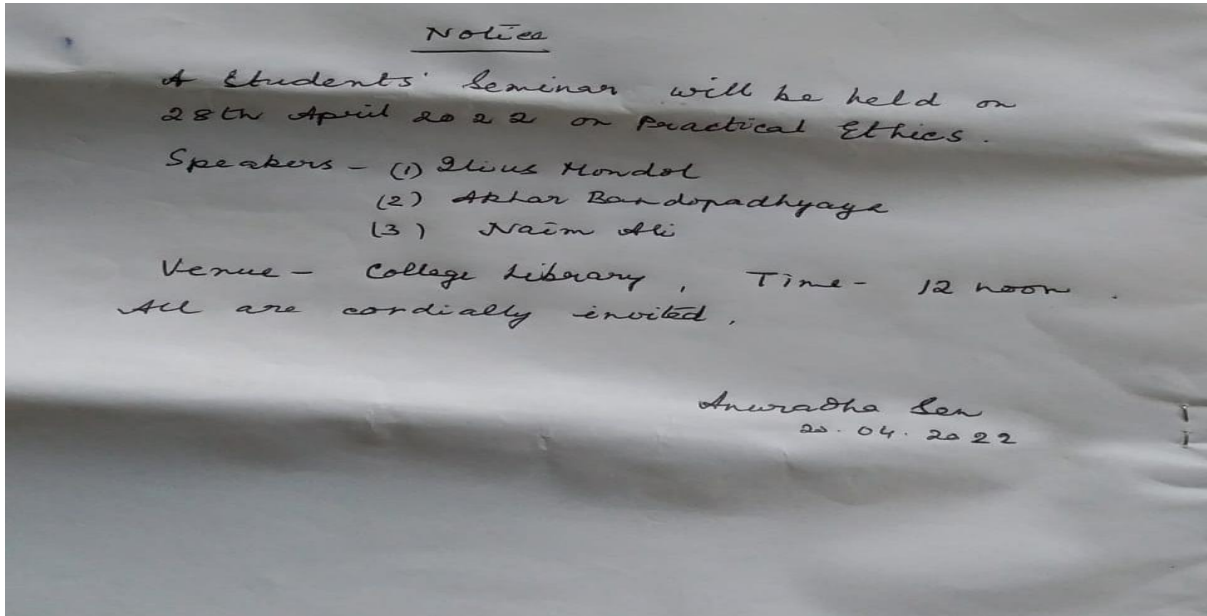 Notice
A Students' Seminar will be held on
28th April 2022 on Practical Ethics.
Speakers - (1) Ilius Mondol
(2) Akhar Bandopadhyaya
(3) Naim Ali
Venue - College Library, Time - 12 noon.
All are cordially invited.
Anuradha Sen
20.04.2022